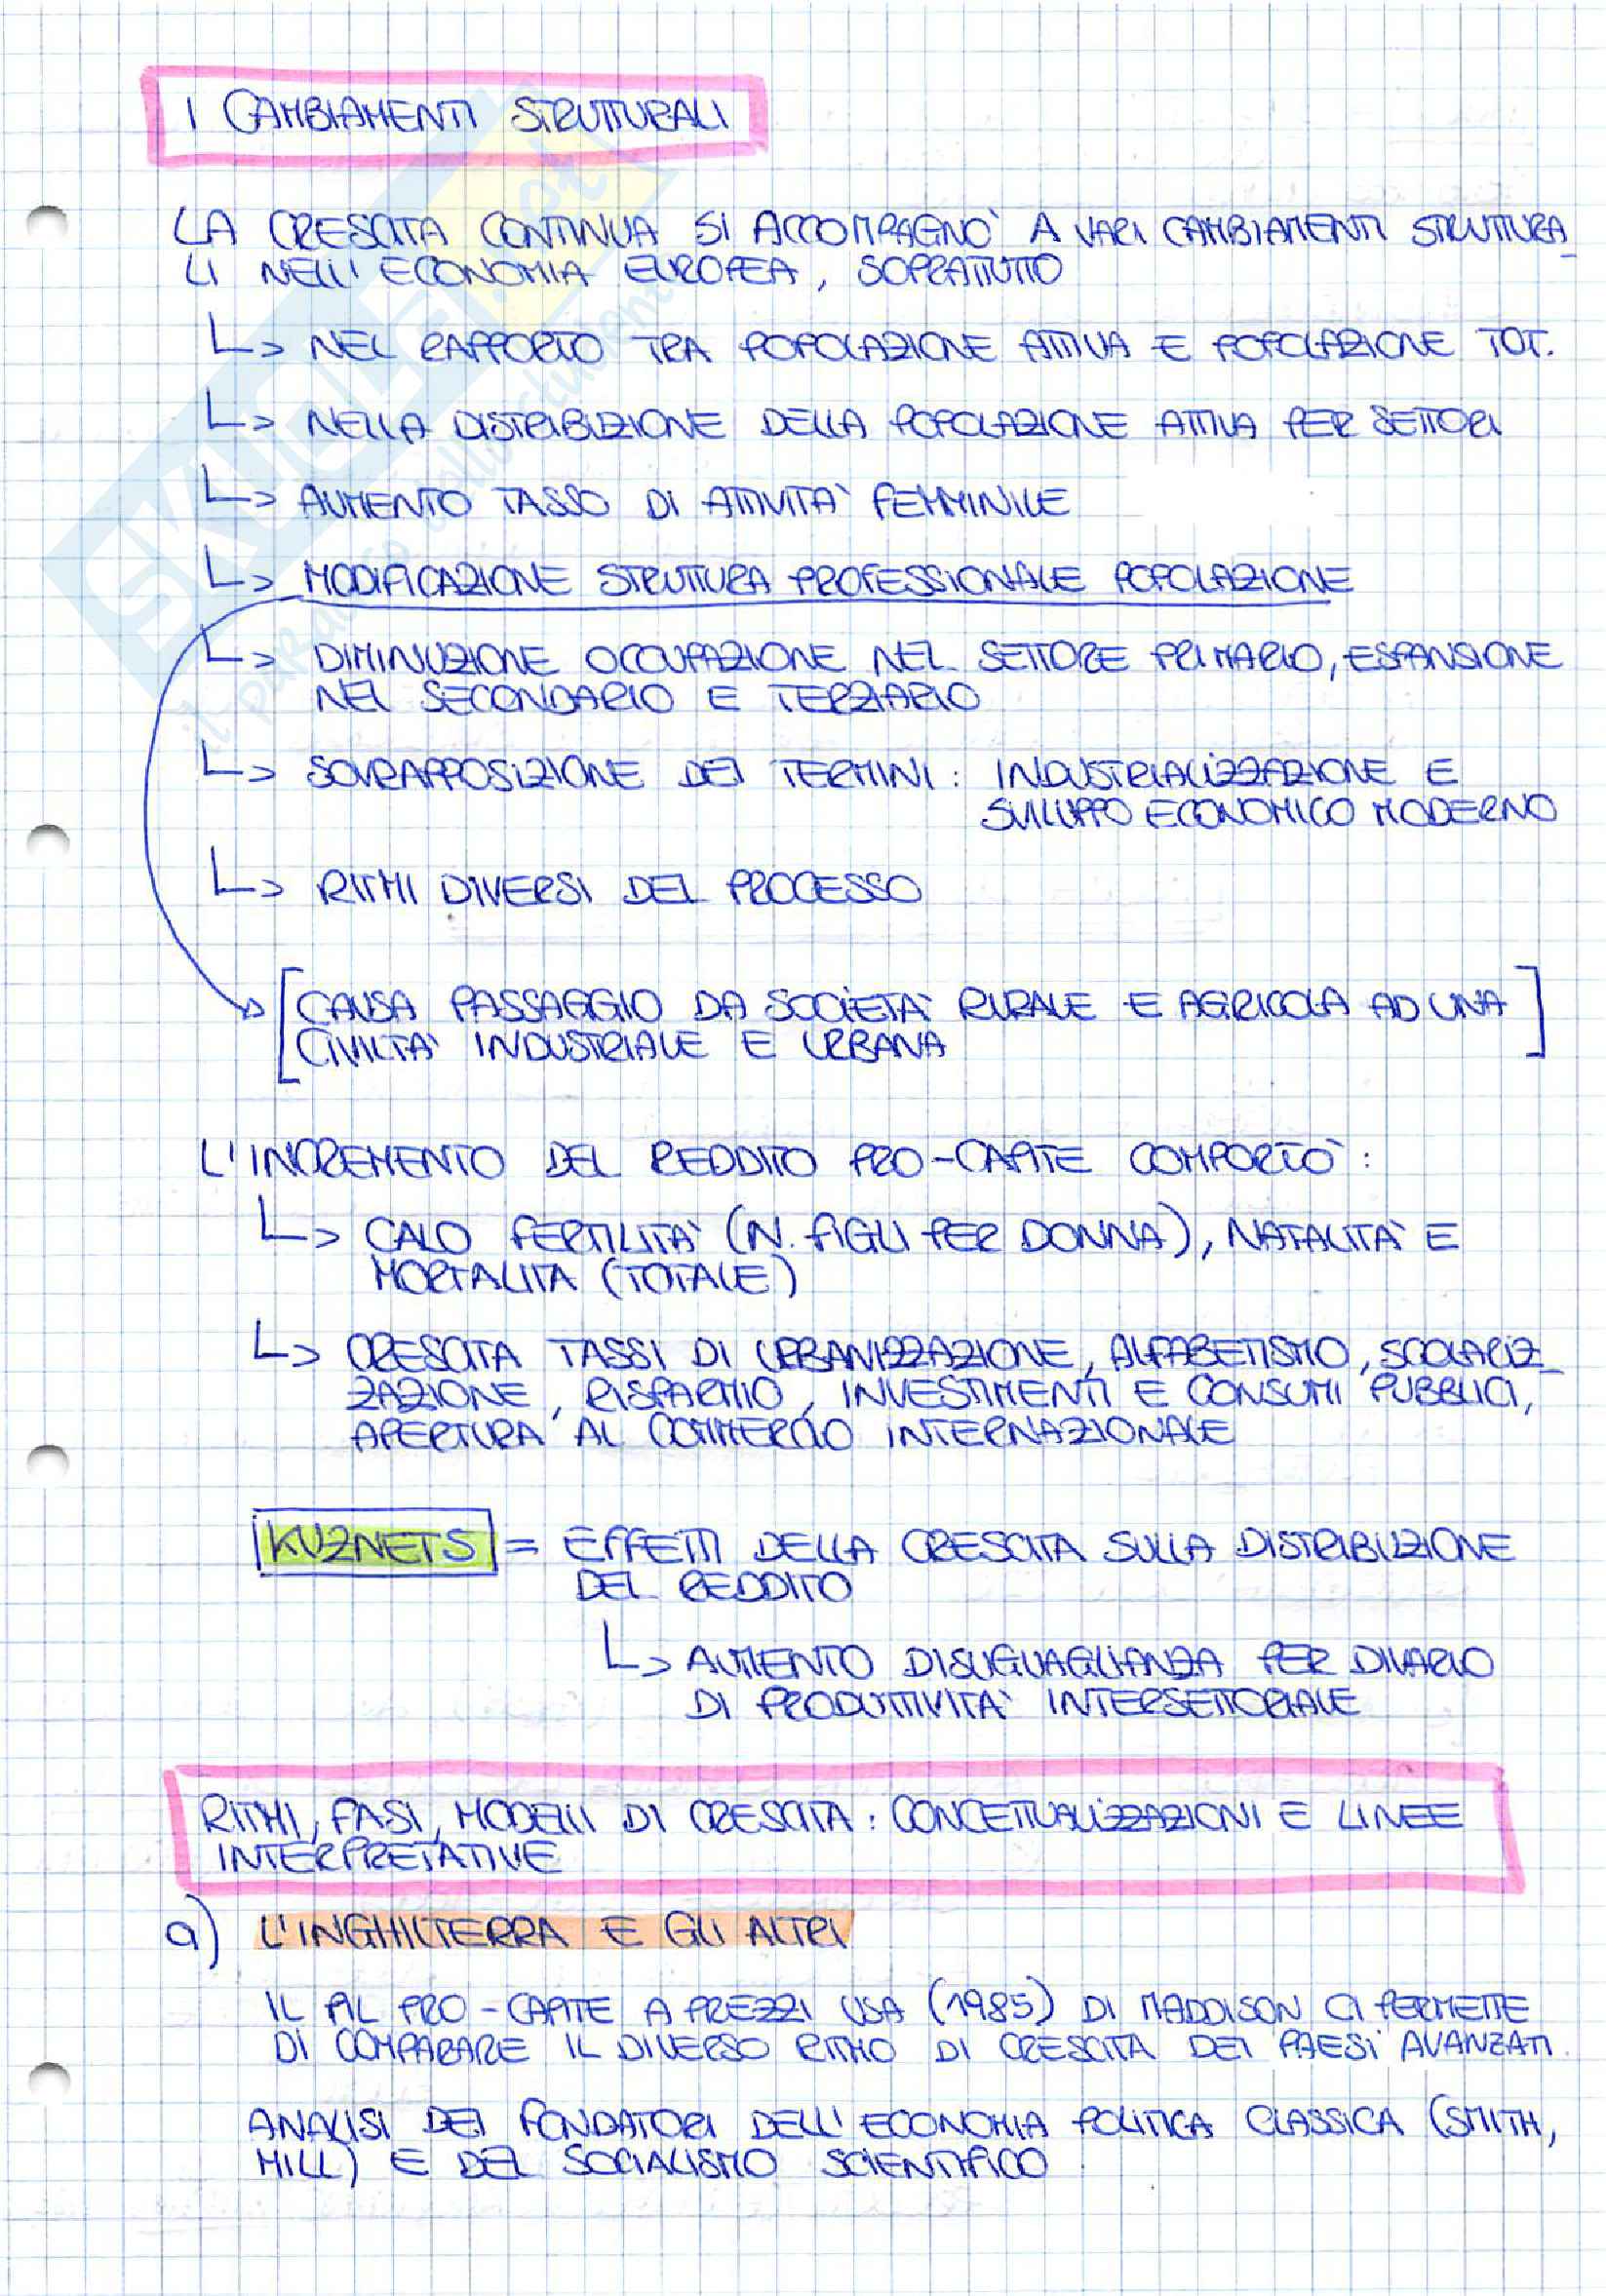 I CAMBIAMENTI STRUTTURALI
LA CRESCITA CONTINUA SI ACCOMPAGNO' A VARI CAMBIAMENTI STRUTTURA_
LI NELL'ECONOMIA EUROPEA, SOPRATTUTTO
NEL RAPPORTO TRA POPOLAZIONE ATTIVA E POPOLAZIONE TOT.
NELLA DISTRIBUZIONE DELLA POPOLAZIONE ATTIVA PER SETTORI
AUMENTO TASSO DI ATTIVITA' FEMMINILE
MODIFICAZIONE STRUTTURA PROFESSIONALE POPOLAZIONE
DIMINUZIONE OCCUPAZIONE NEL SETTORE PRIMARIO, ESPANSIONE
NEL SECONDARIO E TERZIARIO
SOVRAPPOSIZIONE DEI TERMINI: INDUSTRIALIZZAZIONE E
SVILUPPO ECONOMICO MODERNO
RITMI DIVERSI DEL PROCESSO
[CAUSA PASSAGGIO DA SOCIETA' RURALE E AGRICOLA AD UNA
CIVILTA' INDUSTRIALE E URBANA]
L'INCREMENTO DEL REDDITO PRO-CAPITE COMPORTO':
CALO FERTILITA' (N. FIGLI PER DONNA), NATALITA' E
MORTALITA (TOTALE)
CRESCITA TASSI DI URBANIZZAZIONE, ALFABETISMO, SCOLARIZ_
ZAZIONE, RISPARMIO, INVESTIMENTI E CONSUMI PUBBLICI,
APERTURA AL COMMERCIO INTERNAZIONALE
KUZNETS = EFFETTI DELLA CRESCITA SULLA DISTRIBUZIONE
DEL REDDITO
AUMENTO DISUGUAGLIANZA PER DIVARIO
DI PRODUTTIVITA' INTERSETTORIALE
RITMI, FASI, MODELLI DI CRESCITA: CONCETTUALIZZAZIONI E LINEE
INTERPRETATIVE
a) L'INGHILTERRA E GLI ALTRI
IL PIL PRO-CAPITE A PREZZI USA (1985) DI MADDISON CI PERMETTE
DI COMPARARE IL DIVERSO RITMO DI CRESCITA DEI PAESI AVANZATI.
ANALISI DEI FONDATORI DELL'ECONOMIA POLITICA CLASSICA (SMITH,
MILL) E DEL SOCIALISMO SCIENTIFICO
SKUOLA.net